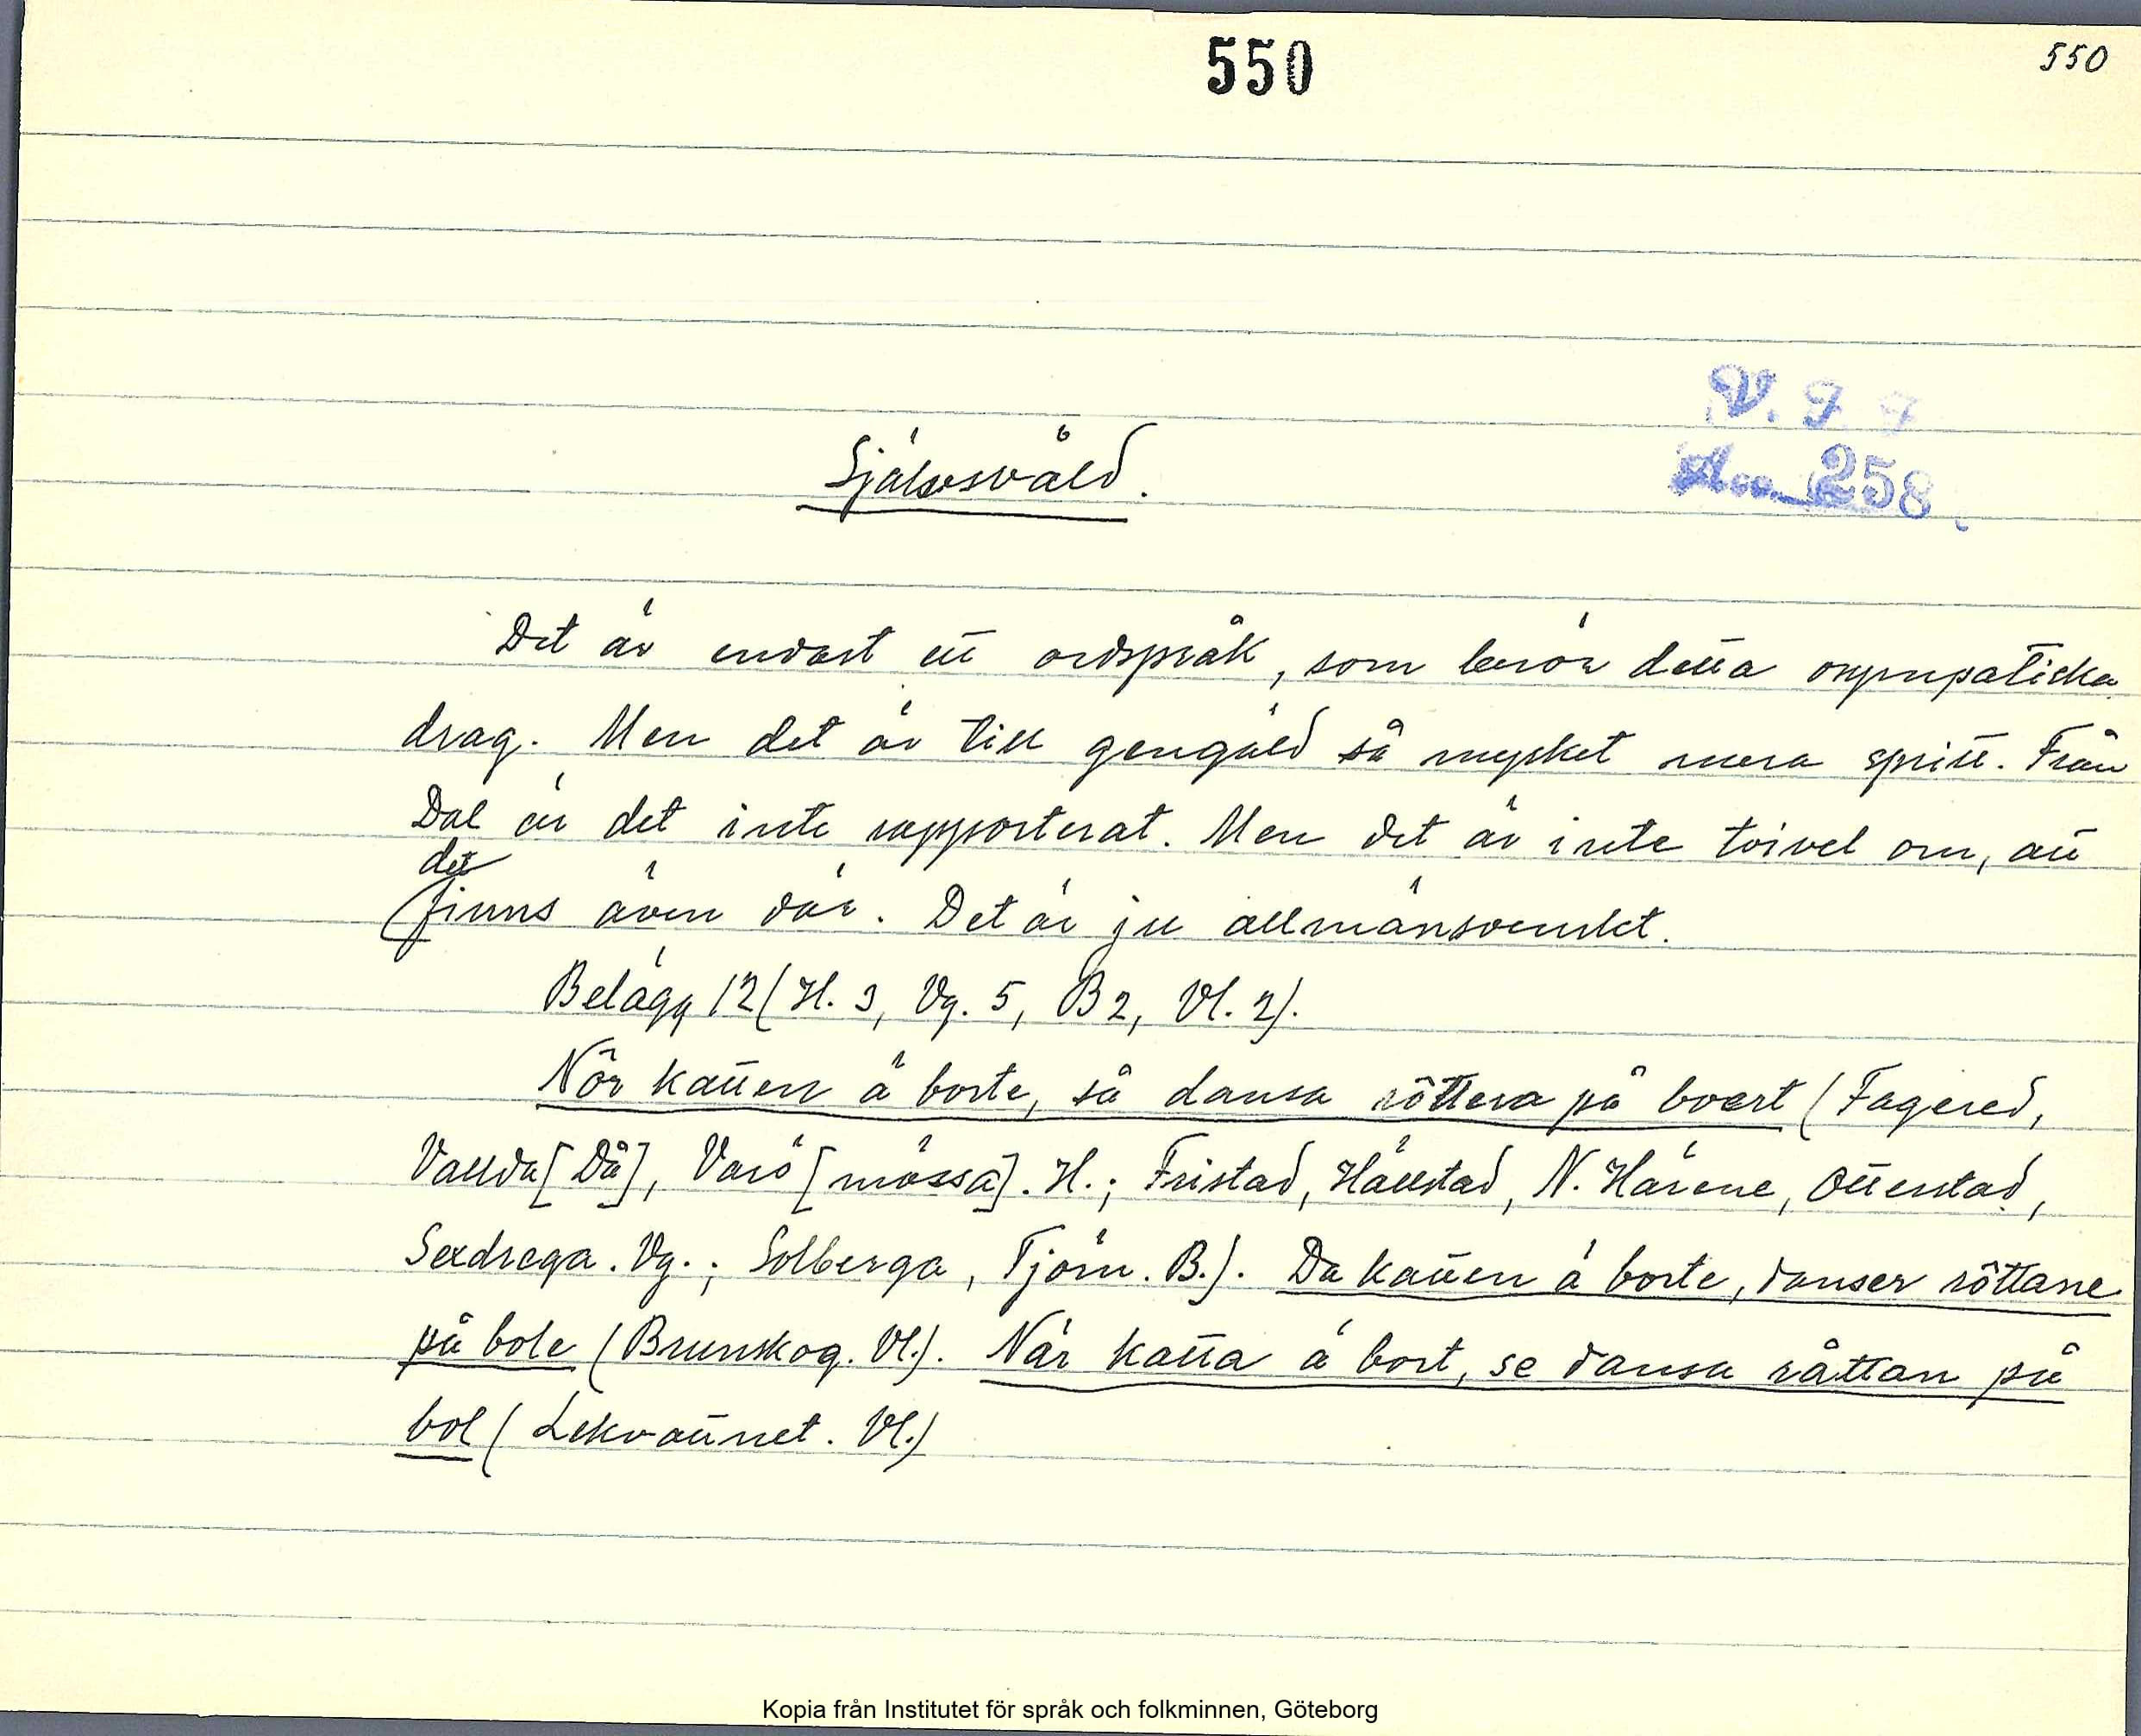 550
550
V. F. F.
Acc. 258
Självsvåld.
Det är endast ett ordspråk, som berör detta osympatiska
drag. Men det är till gengäld så mycket mera spritt. Från
Dal är det inte rapporterat. Men det är inte tvivel om, att
det
finns även där. Det är ju allmänsvenskt.
Belägg 12 (H. 3, Vg. 5, B 2, Vl. 2).
Nôr katten ä borte, så dansa rôttera på boert (Fagered,
Vallda [Då], Varö [mössa]. H.; Fristad, Hällstad, N. Härene, Otterstad,
Sexdrega. Vg.; Solberga, Tjörn. B.). Da katten ä borte, danser rôttane
på bole (Brunskog. Vl.). När katta ä bort, se dansa råttan på
bol (Lekvattnet. Vl.)
Kopia från Institutet för språk och folkminnen, Göteborg